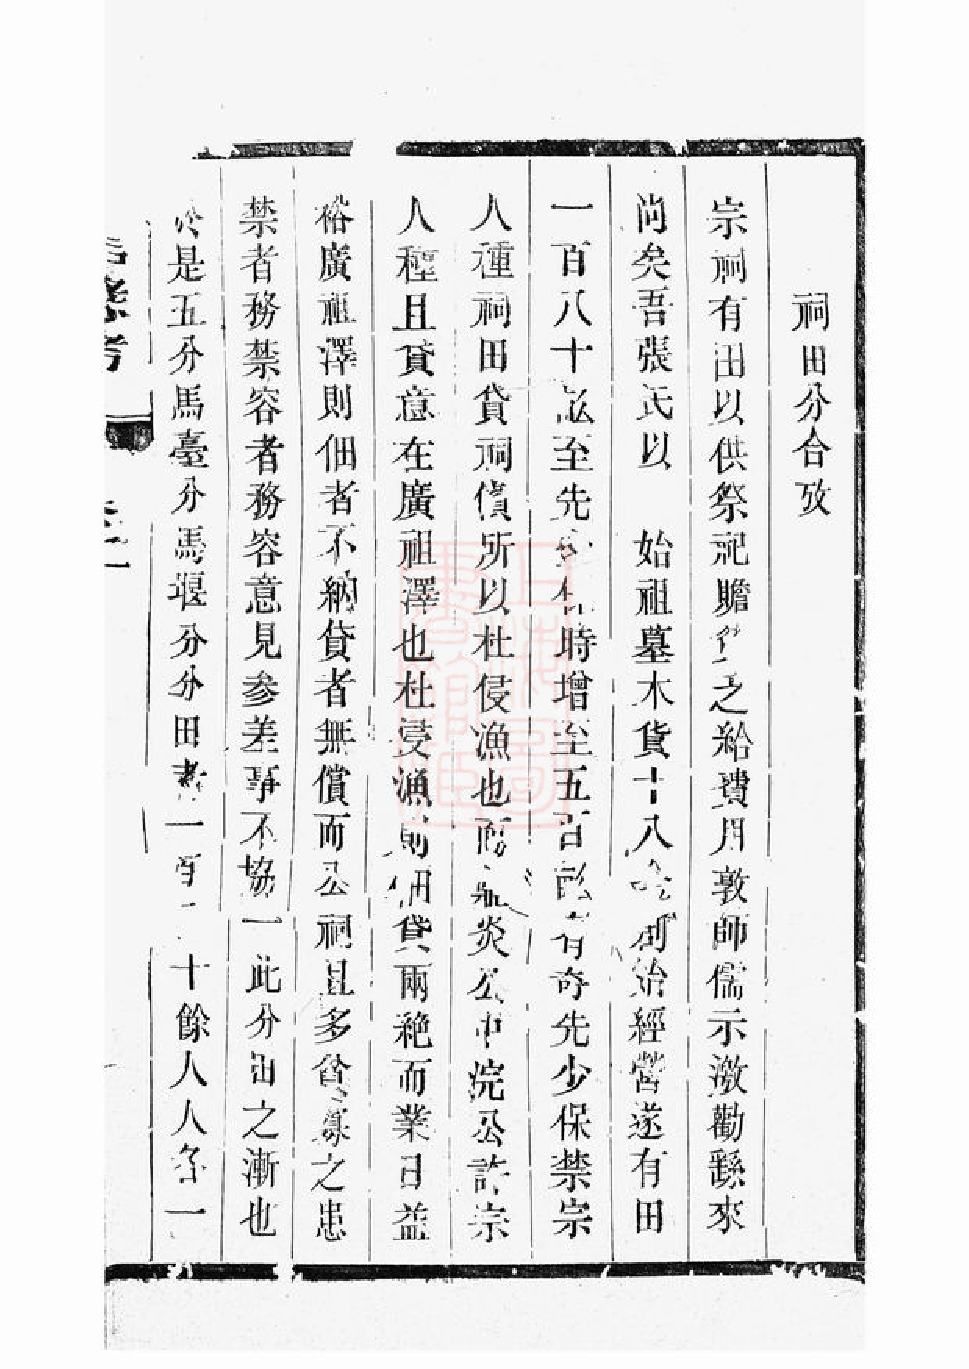 祠田分合攷
宗祠有田以供祭祀贍之給費用敦師儒示激勸繇來
尚矣吾張氏以 始祖墓木貨十八創始經營遂有田
一百八十畝至先少保時增至五百畝有奇先少保禁宗
人種祠田貸祠債所以杜侵漁也而炎公中浣公許宗
人種且貸意在廣祖澤也杜侵漁則佃貸兩絶而業日益
裕廣祖澤則佃者不納貸者無償而公祠且多貧之患
禁者務禁容者務容意見參差事不協一此分田之漸也
於是五分馬臺分馬堰分分田者一百二十餘人人各一